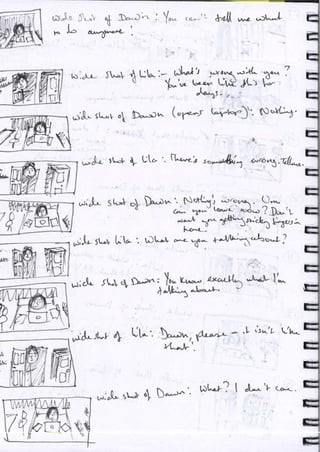 wide shot of Dawn: You can't tell me what
to do anymore!
wide shot of Lila:- What's wrong with you?
You've been like this for
days.
wide shot of Dawn (opens laptop): Nothing.
wide shot of Lila: There's something wrong. Tell me.
wide shot of Dawn: Nothing's wrong. Um
can you leave now? Don't
want you getting sticky fingers in
here
wide shot Lila: What are you talking about?
wide shot of Dawn: You know exactly what I'm
talking about.
wide shot of Lila: Dawn, please - it isn't like
that!
wide shot of Dawn: What? I don't care.